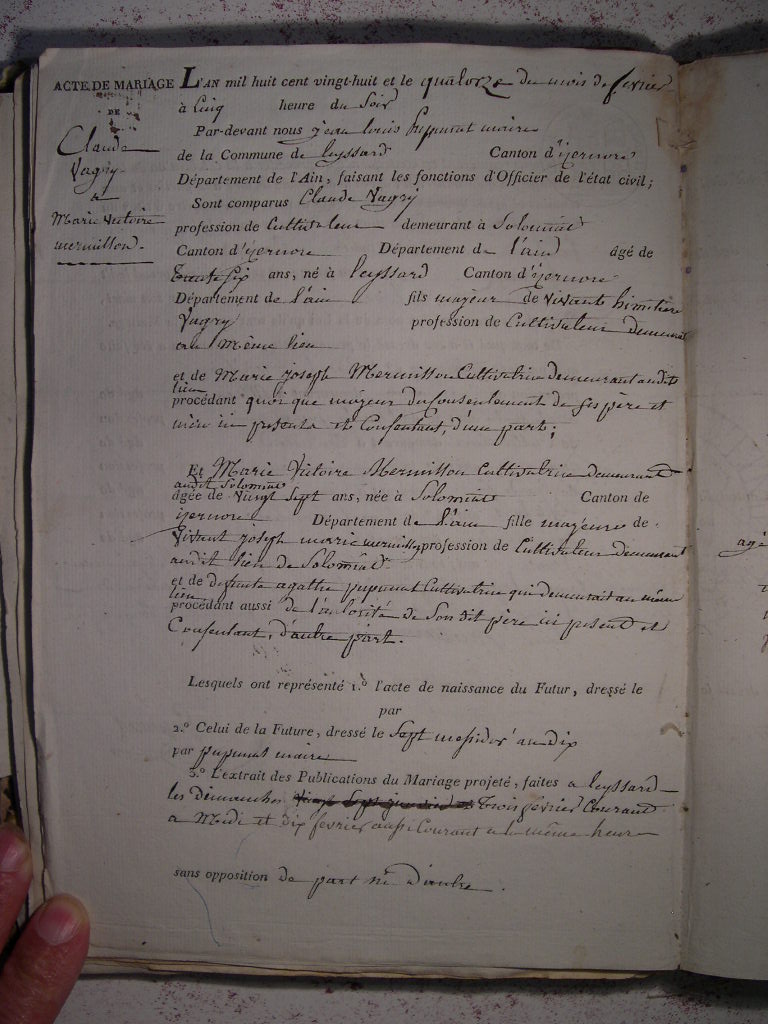 ACTE DE MARIAGE
DE
Claude
Vagry
&
Marie Victoire
mermillon.
L'AN mil huit cent vingt-huit et le quatorze du mois de fevrier
à Cinq heure du Soir
Par-devant nous jean louis pupunat maire
de la Commune de leyssard Canton d'izernore
Département de l'Ain, faisant les fonctions d'Officier de l'état civil;
Sont comparus Claude Vagry
profession de Cultivateur demeurant à Solomiat
Canton d'izernore Département de l'ain âgé de
trente six ans, né à leyssard Canton d'izernore
Département de l'ain fils majeur de vivants
Vagry profession de Cultivateur demeurant
au Même lieu
et de Marie joseph Mermillon Cultivatrice demeurant audit
lieu
procédant quoi que majeur du Consentement de ses père et
mère ici présents et Consentant, d'une part;
Et Marie Victoire Mermillon Cultivatrice demeurant
audit Solomiat
âgée de vingt Sept ans, née à Solomiat Canton de
izernore Département de l'ain fille majeure de
Vivant joseph marie mermillon profession de Cultivateur demeurant
audit lieu de Solomiat
et de defunte agathe pupunat Cultivatrice qui demeurait au même
lieu
procédant aussi de l'autorité de Son dit père ici présent et
Consentant, d'autre part.
Lesquels ont représenté 1.º l'acte de naissance du Futur, dressé le
par
2.º Celui de la Future, dressé le Sept messidor an dix
par pupunat maire
3.º L'extrait des Publications du Mariage projeté, faites a leyssard
les dimanches trois février Courant
a Midi et dix fevrier aussi Courant a la même heure
sans opposition de part ni d'autre.
agé